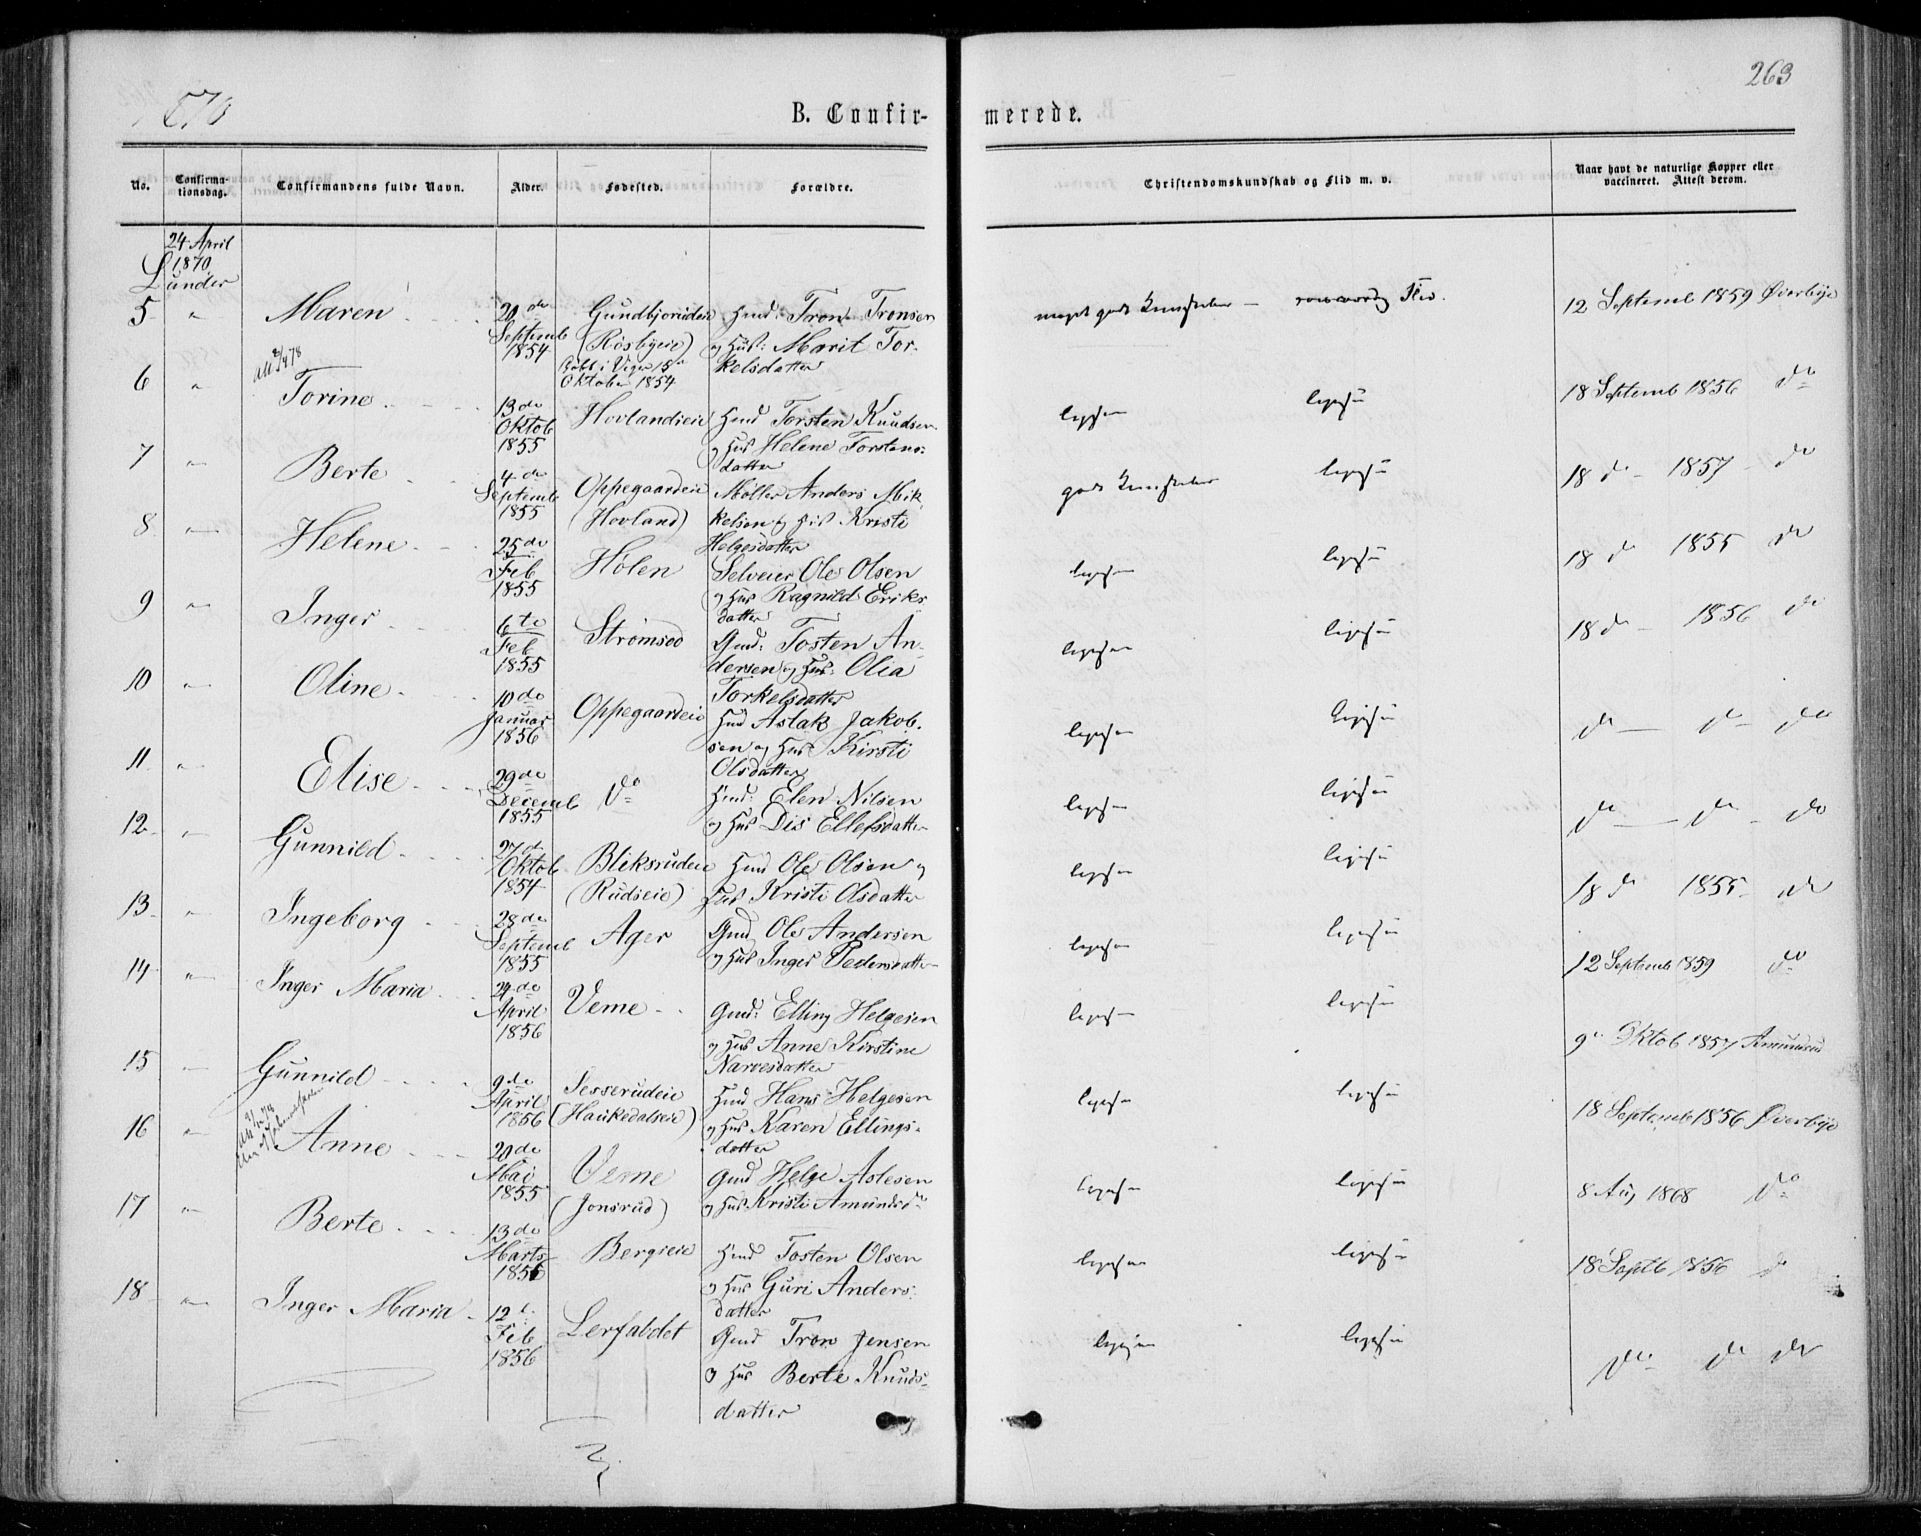 1870
B. Confir-
merede.
263
No.
Confirma-
tionsdag.
Confirmandens fulde Navn.
Alder.
Fødested.
Forældre.
Christendomskundskab og Flid m. v.
Naar havt de naturlige Kopper eller
vaccineret. Attest derom.
24 April
1870
Lunder
5 " Maren 20de Septemb 1854 Gundbjoruden (Rosbyeie) Døbt i Viger 15 Oktober 1854 Huusmd: Tron Tronsen og Hus: Marit Torkelsdatter
meget gode Kundskaber — roesværdig Flid.
12 Septemb 1859 Øverbye
6 " att 78 Torine 13de Oktob 1855 Hovlandseie Husmd Torsten Knudsen og Hus Helene Torstensdatter
ligesaa ligesaa
18 Septemb 1856 do
7 " Berte 4de Septemb 1855 Oppegaardeie (Hovland) Møller Anders Mikkelsen og Hus Kristi Helgesdatter
gode Kundskaber ligesaa
18 do 1857 do
8 " Helene 25de Feb 1855 Hølen Selveier Ole Olsen og Hus Ragnild Eriksdatter
ligesaa ligesaa
18 do 1855 do
9 " Inger 6te Feb 1855 Strømsod Gmd: Tosten Andersen og Hus: Olia Torkelsdatter
ligesaa ligesaa
18 do 1856 do
10 " Oline 10de Januar 1856 Oppegaardeie Husmd Aslak Jakobsen og Hus Kirsti Olsdatter
ligesaa ligesaa
do do do
11 " Elise 29de Decemb 1855 do Husmd: Elen Nilsen og Hus Dis Ellefsdatter
ligesaa ligesaa
do do do
12 " Gunnild 27de Oktob 1854 Bliksrudeie (Rudseie) Husmd Ole Olsen og Hus Kristi Olsdatter
ligesaa ligesaa
18 do 1855 do
13 " Ingeborg 28de Septemb 1855 Ager Gmd Ole Andersen og Hus Inger Pedersdatter
ligesaa ligesaa
12 Septemb 1859 do
14 " Inger Maria 24de April 1856 Veme Gmd: Elling Helgesen og Hus Anne Kirstine Narvesdatter
ligesaa ligesaa
9de Oktob 1857 Amundrud
15 " Gunnild 9de April 1856 Sesserudeie (Haukedalseie) Husmd Hans Helgesen og Hus Karen Ellingsdatter
ligesaa ligesaa
18 Septemb 1856 Øverbye
16 " Anne 20de Mai 1855 Veme (Jonsrud) Gmd Helge Aslesen og Hus Kristi Amundsdr
ligesaa ligesaa
8 Aug 1868 do
17 " Berte 13de Marts 1856 Bergseie Husmd Tosten Olsen og Hus Guri Andersdatter
ligesaa ligesaa
18 Septb 1856 do
18 " Inger Maria 12te Feb 1856 Lerfaldet Gmd Tron Jensen og Hus Berte Knudsdatter
ligesaa ligesaa
do do do